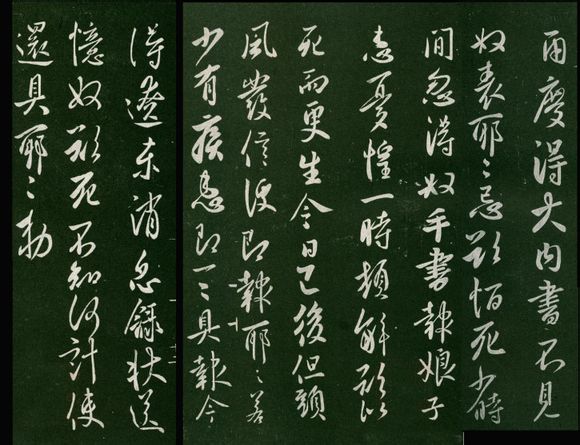 兩度得大內書不見
奴表耶〻忌欲恆死少時
間忽得奴手書報娘子
患憂惶一時頓解欲似
死而更生今日已後但頭
風發信便即報耶〻若
少有疾患即一〻具報今
得遼東消息錄狀送
憶奴欲死不知何計使
還具耶〻敕